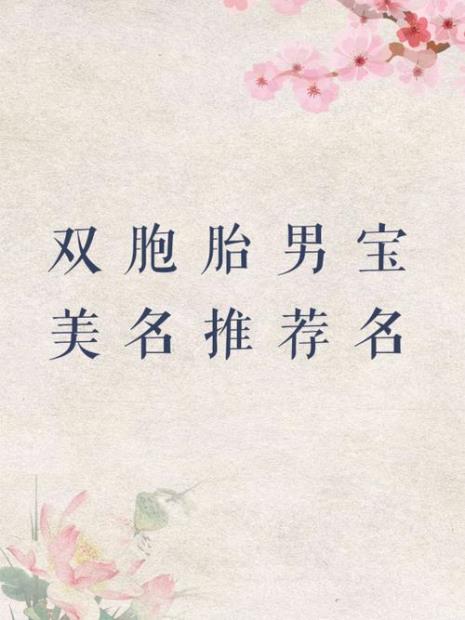 双胞胎男宝
美名推荐名